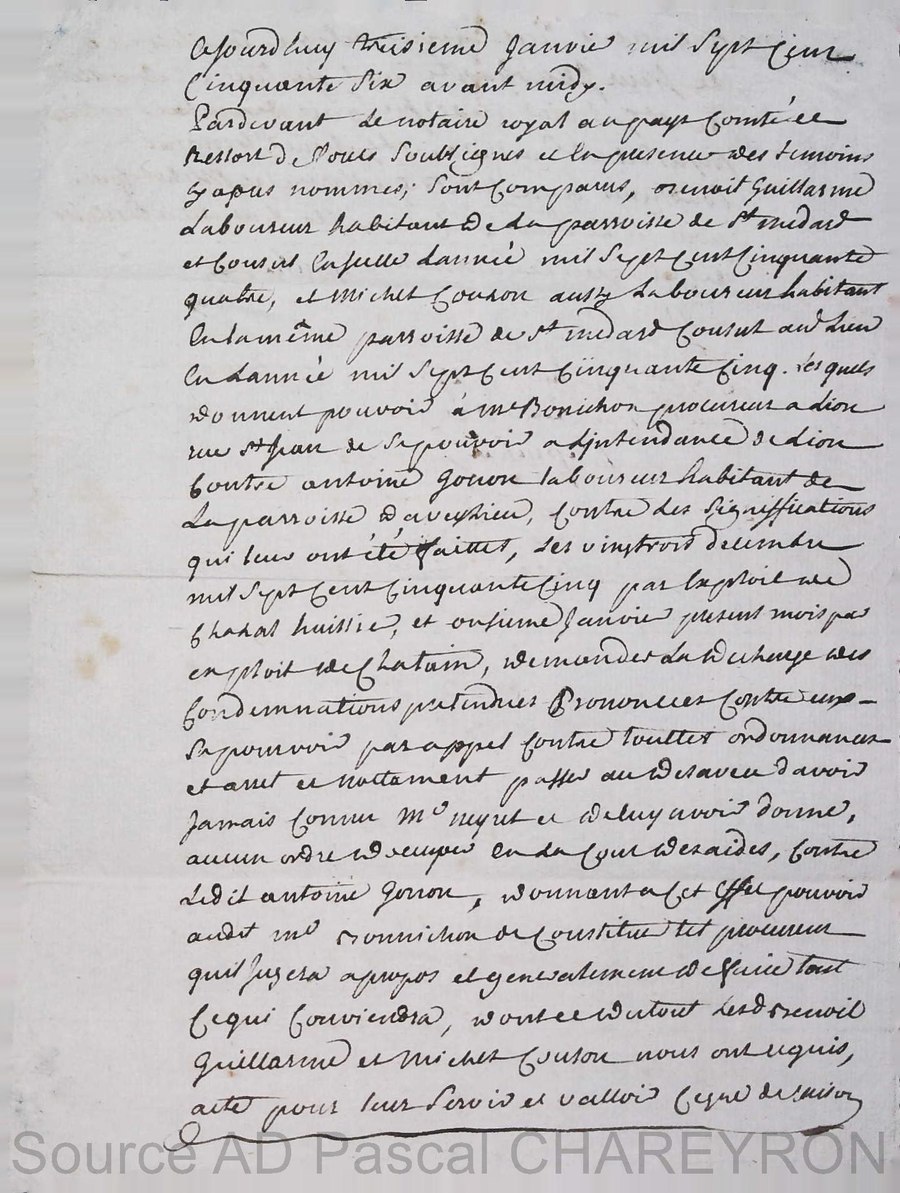 Cejourdhuy treisieme Janvie mil Sept Cent
Cinquante Six avant midy.
Pardevant Le notaire royal au pays Comté et
Ressort de Soubsignes et En presence des temoins
Cy apres nommes; Sont Comparus, Benoit Guillarme
Laboureur habitant de La parroisse de St medard
et Consul En Icelle Lannée mil Sept Cent Cinquante
quatre, et Michel Couson aussy Laboureur habitant
En La même parroisse de St medard Consul aud Lieu
En Lannée mil Sept Cent Cinquante Cinq. Les quels
donnent pouvoir à Me Bonichon procureur a Lion
rue St Jean de Se pouvoir a Lintendance de Lion
Contre antoine Gonon Laboureur habitant de
La parroisse daveyzieu, Contre des Significations
qui leur ont été faittes, Les vingtrois decembre
mil Sept Cent Cinquante Cinq par Exploit de
huissie, et onsieme Janvie present mois par
exploit de Chatain, demandes La decharge des
Condemnations pretendues Prononcees Contre eux
Se pourvoir par appel Contre touttes ordonnances
et arret et nottament passer au desaveu davoir
Jamais Connu Me neyret et de luy avoir donné,
aucun ordre doccuper En La Cour des aides, Contre
Ledit antoine Gonon, donnant a Cet effet pouvoir
audit Me Bonnichon de Constitue tel procureur
quil Jugera apropos et generalement de faire tout
Cequi Conviendra, dont et du tout Lesd Benoit
Guillarme et Michel Couson nous ont requis,
acte pour leur Servir et valloir Ceque de raison
Source AD Pascal CHAREYRON